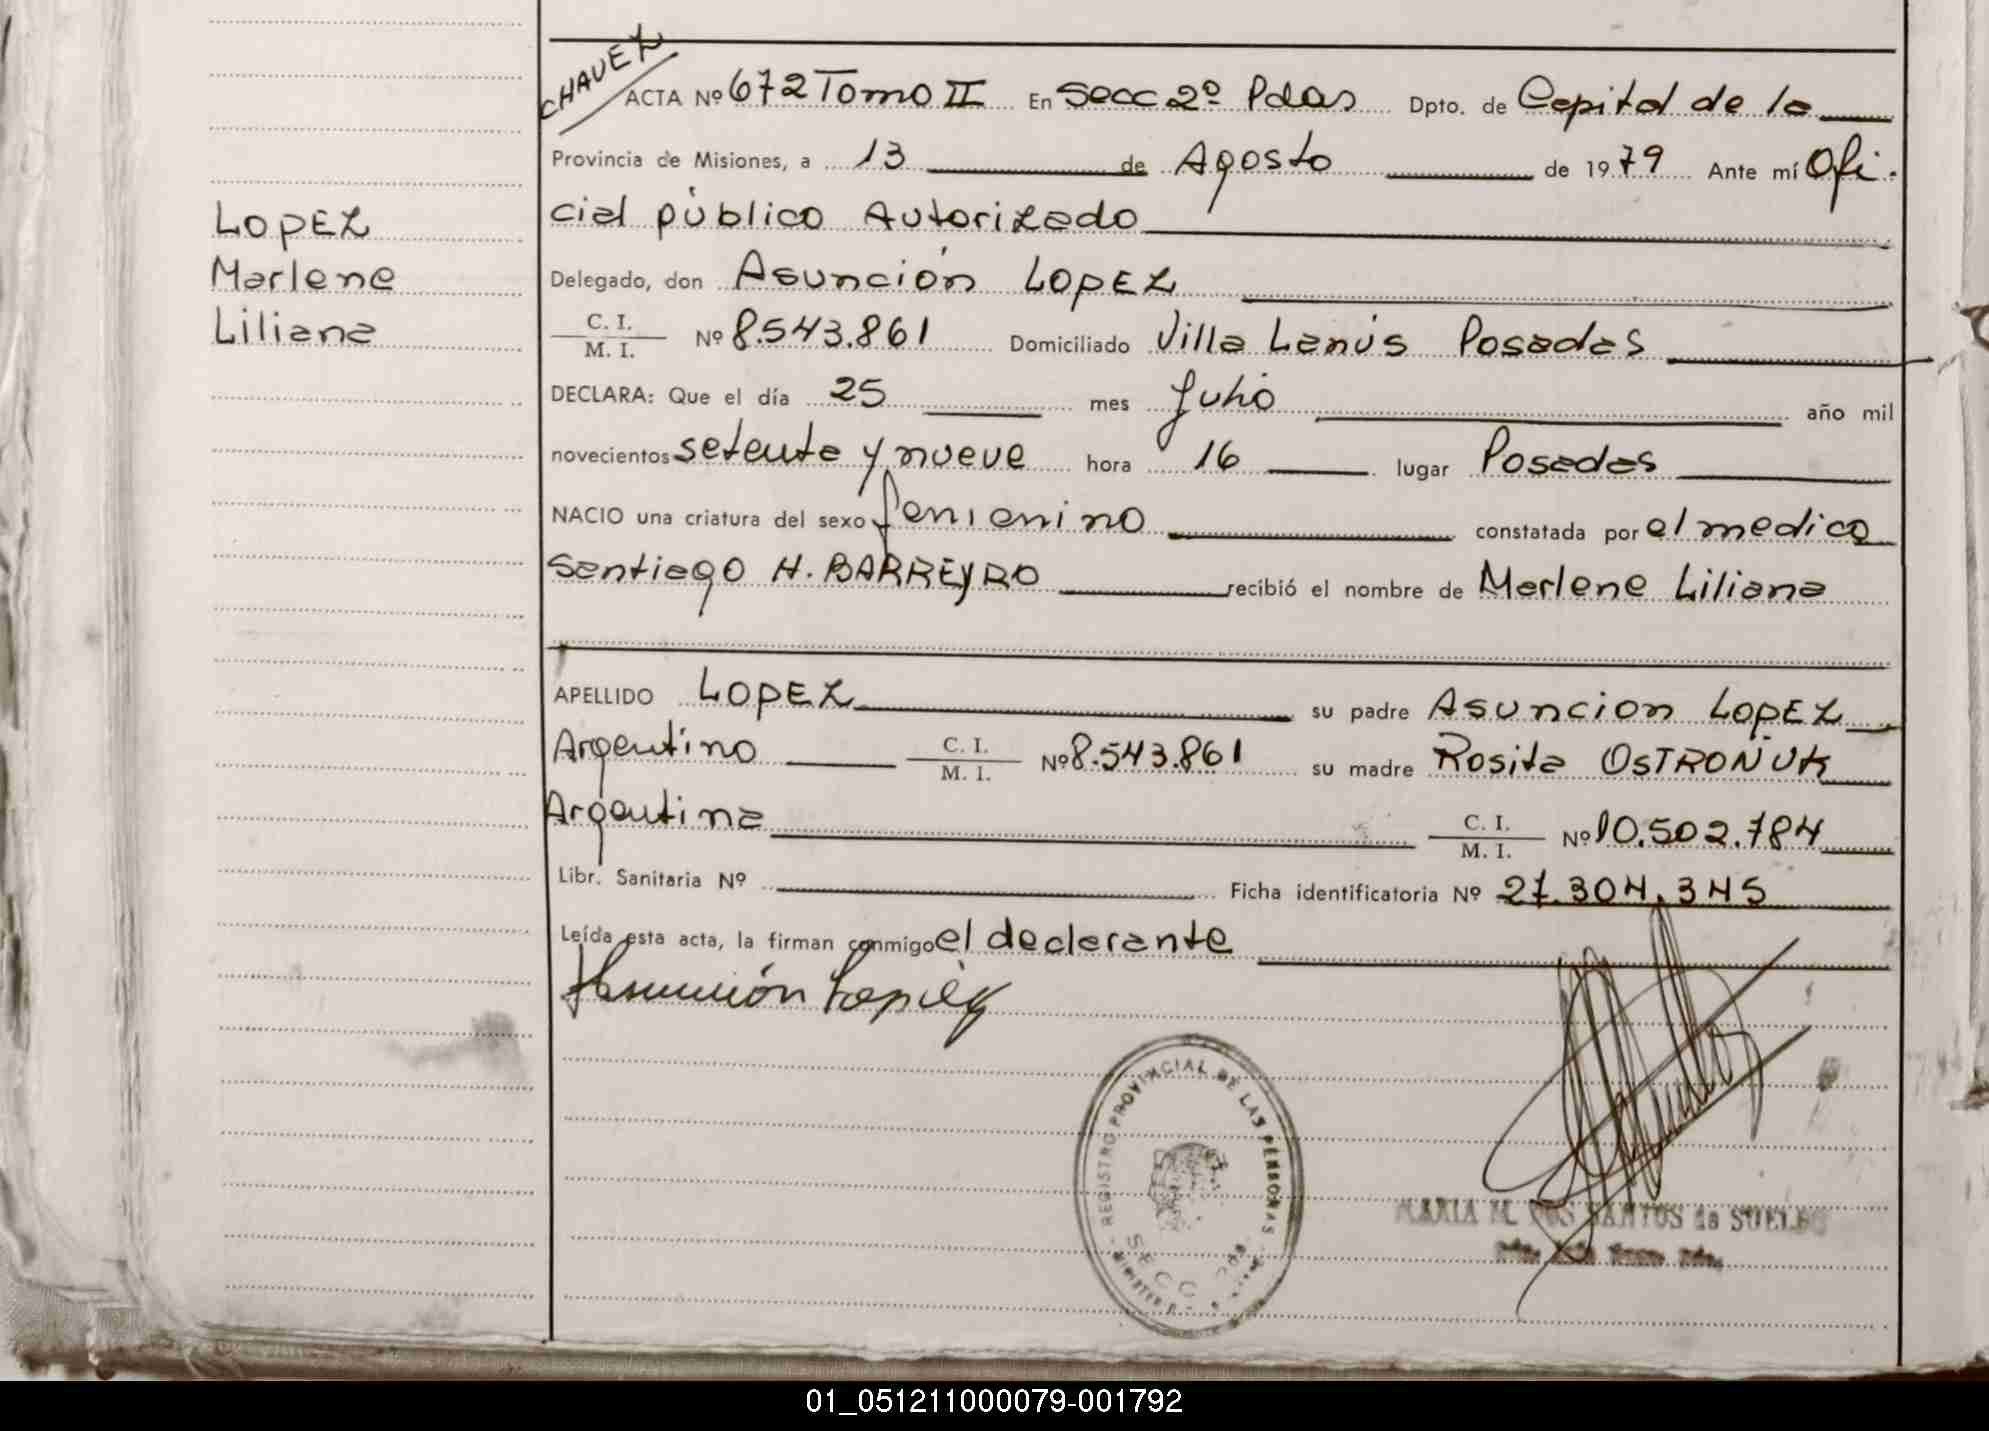 CHAVEZ
ACTA Nº 672 Tomo II En Secc 2º Pdas Dpto. de Capital de la
Provincia de Misiones, a 13 de Agosto de 1979 Ante mí Ofi-
cial público Autorizado
Delegado, don Asunción LOPEZ
C. I.
M. I. Nº 8.543.861 Domiciliado Villa Lanús Posadas
DECLARA: Que el día 25 mes Julio año mil
novecientos setenta y nueve hora 16 lugar Posadas
NACIO una criatura del sexo femenino constatada por el medico
Santiago H. BARREYRO recibió el nombre de Marlene Liliana
APELLIDO LOPEZ su padre Asuncion LOPEZ
Argentino C. I.
M. I. Nº 8.543.861 su madre Rosita OSTROÑUK
Argentina C. I.
M. I. Nº 10.502.784
Libr. Sanitaria Nº Ficha identificatoria Nº 27.304.345
Leída esta acta, la firman conmigo el declarante
Asunción Lopéz
LOPEZ
Marlene
Liliana
REGISTRO PROVINCIAL DE LAS PERSONAS
SECC
MARIA M. DOS SANTOS de SUELDO
01_051211000079-001792